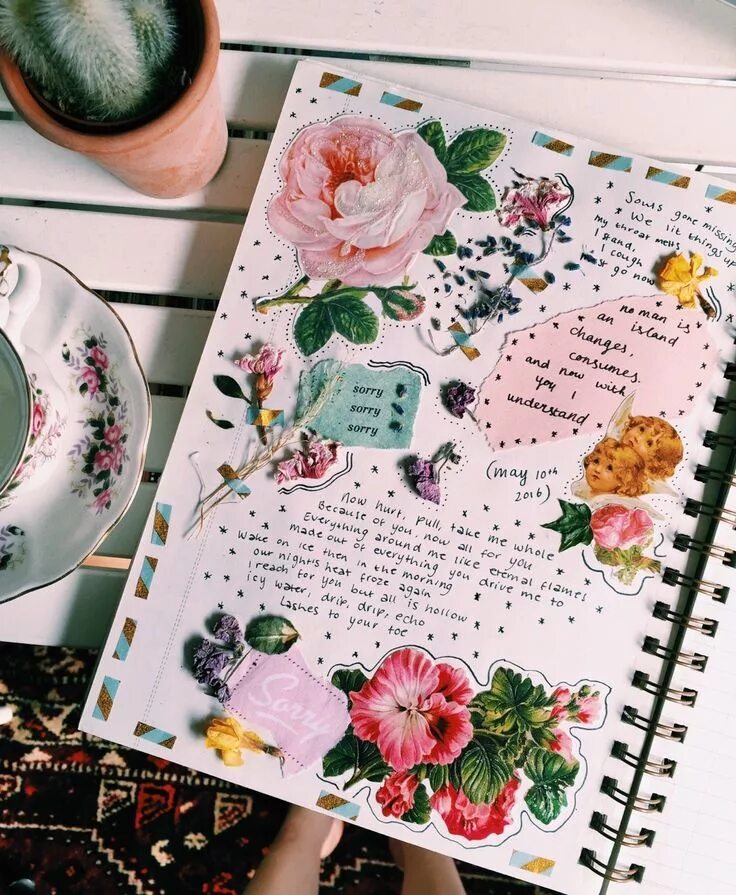 Souls gone missing
We lit things up
My throat mews
I stand,
I cough
go now
no man is
an island
changes,
consumes.
and now with
you I
understand
sorry
sorry
sorry
(may 10th
2016)
Now hurt, pull, take me whole
Because of you, now all for you
Everything around me like eternal flames
made out of everything you drive me to
Wake on ice then in the morning
our night's heat froze again
I reach for you but all is hollow
icy water, drip, drip, echo
Lashes to your toe
Sorry